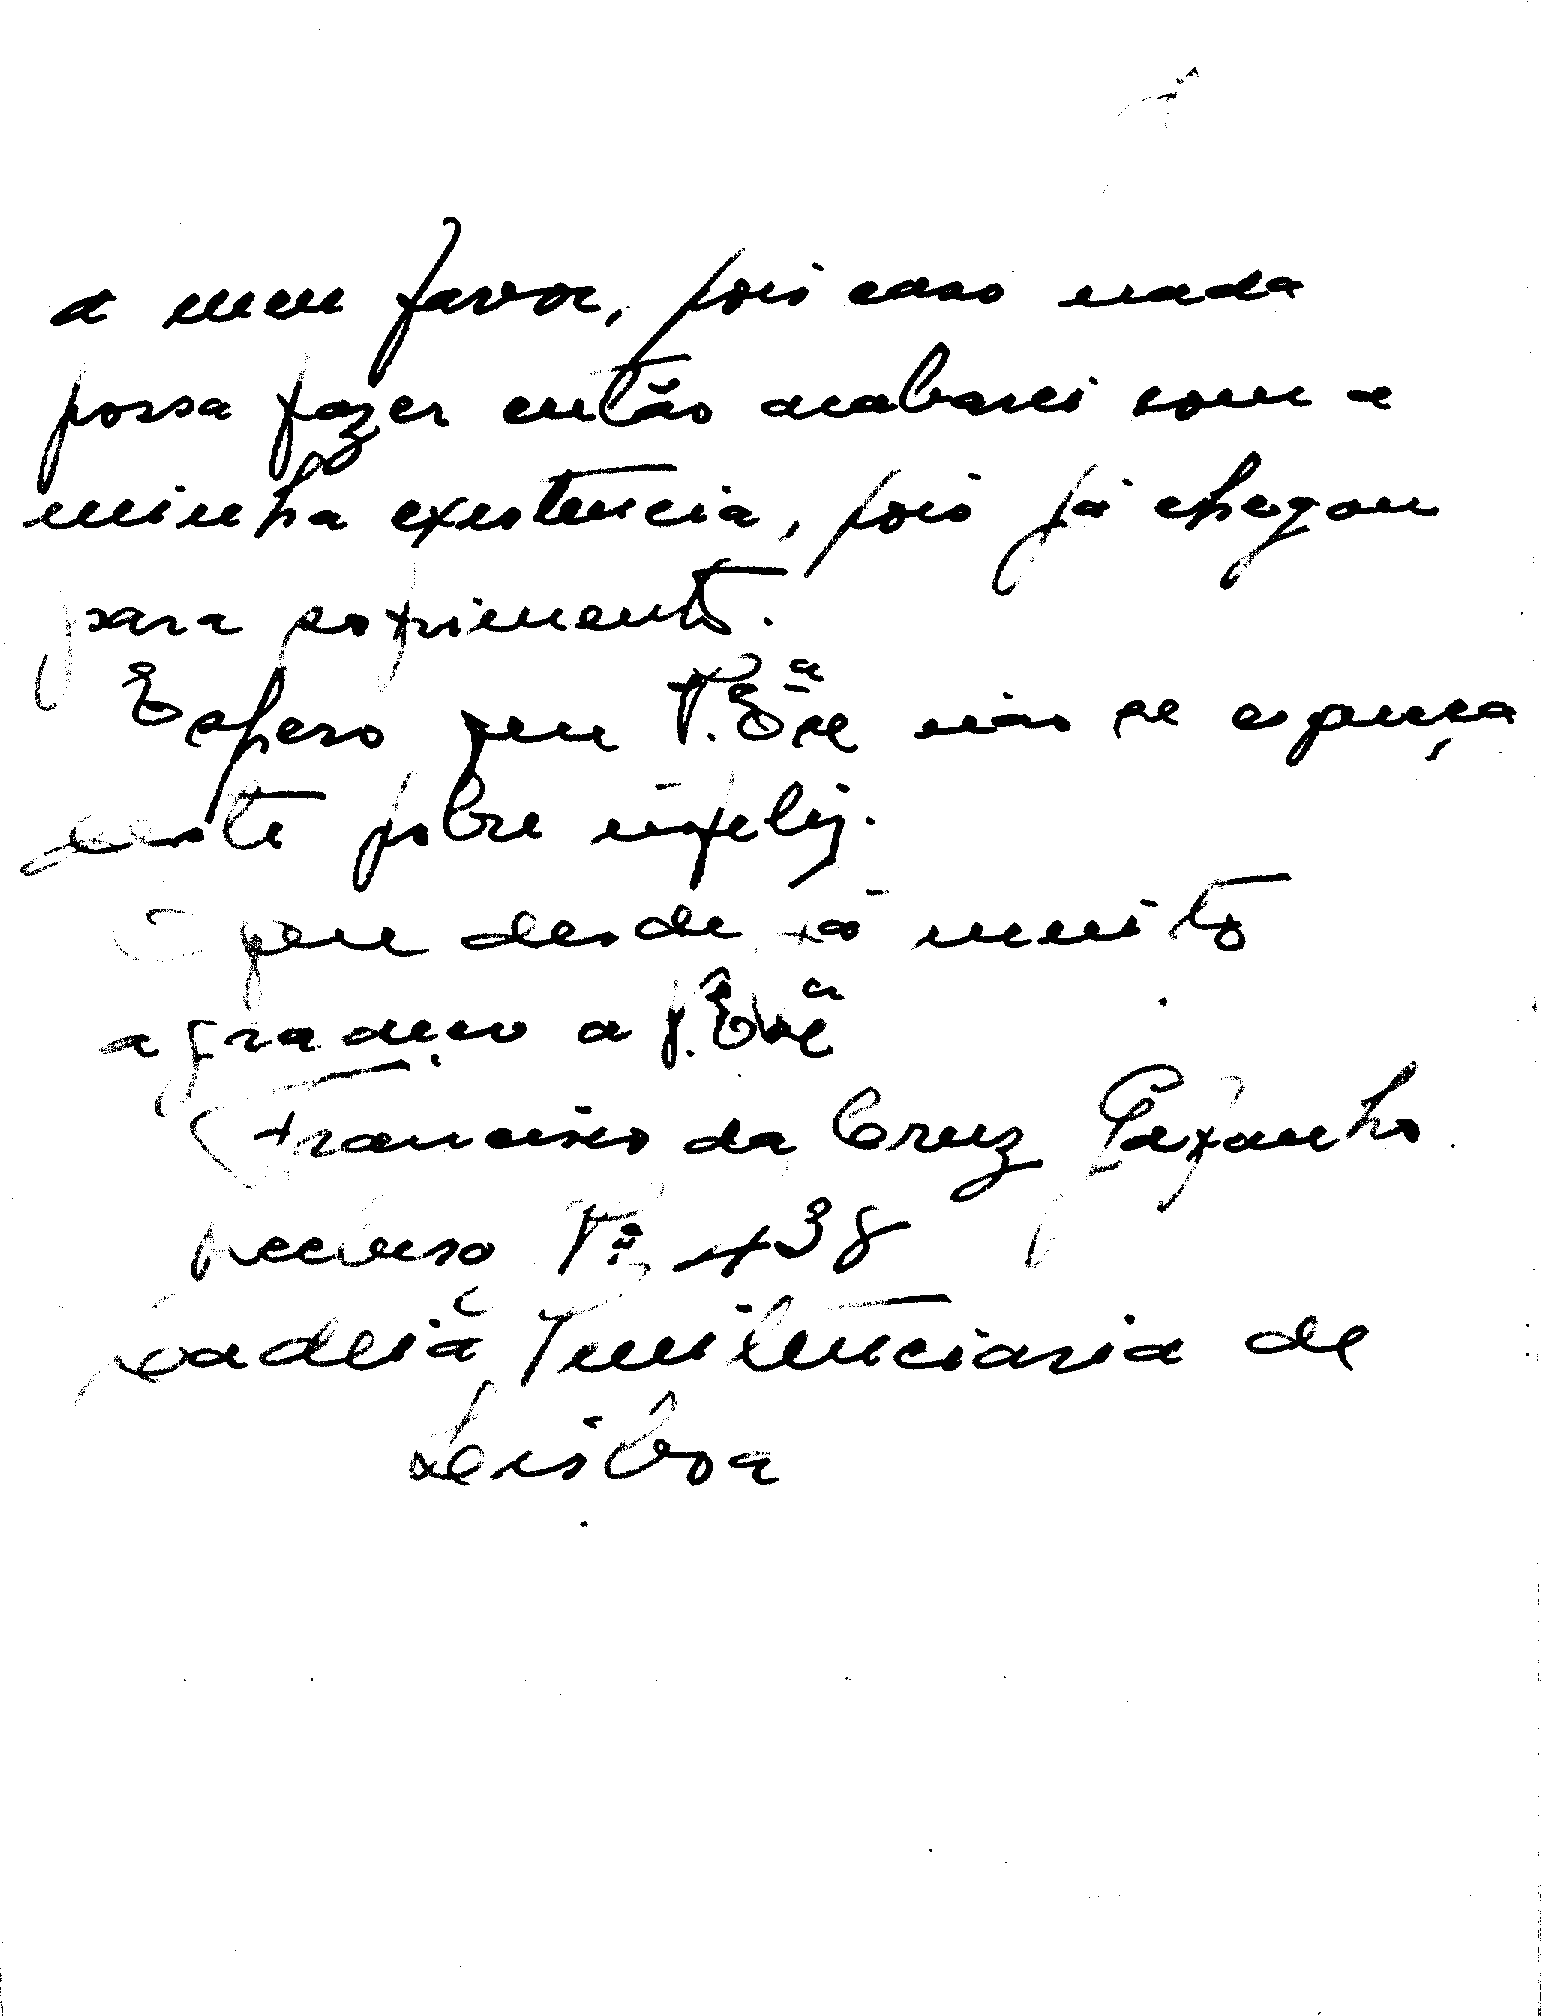 a meu favor, pois caso nada
possa fazer então acabarei com a
minha existencia, pois já chegou
para sofrimento.
Espero que V. Exª não se esqueça
deste pobre infeliz.
O que desde já muito
agradeço a V. Exª
Francisco da Cruz Gafanho
recluso Nº 438
Cadeia Penitenciaria de
Lisboa